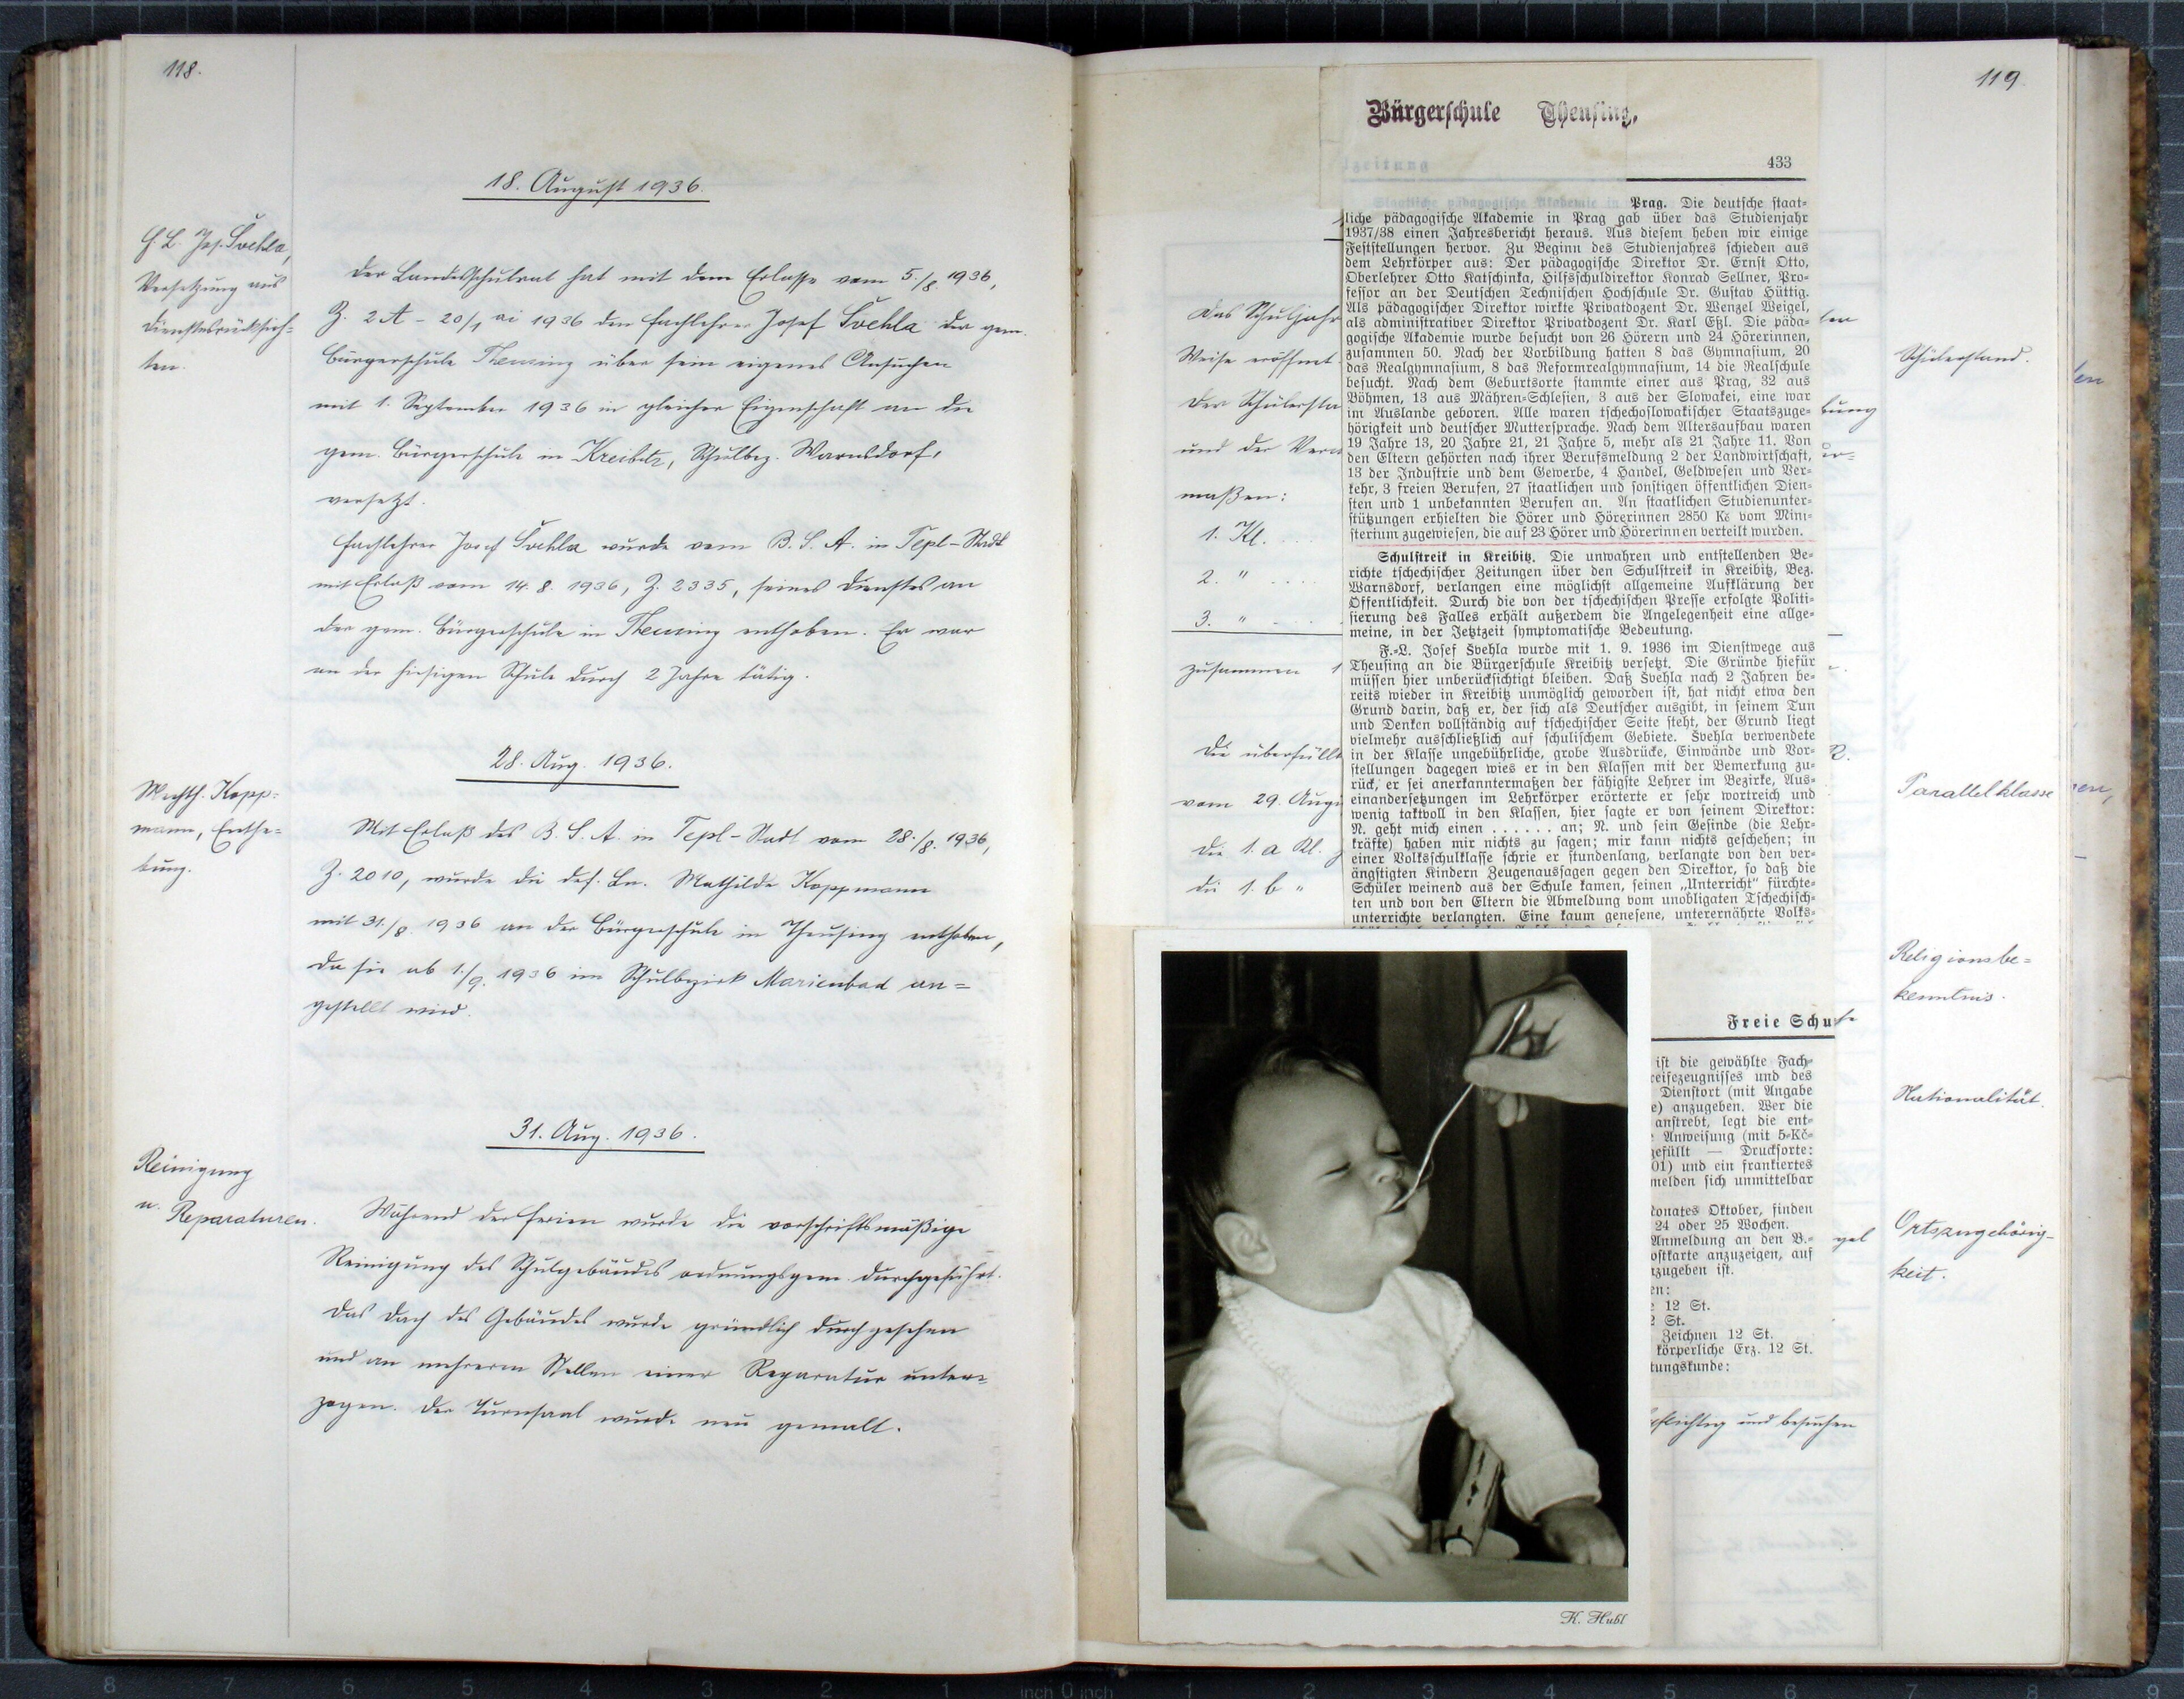 118.
18. August 1936.
F. L. Jos. Švehla,
Versetzung aus
Dienstesrücksich=
ten.
Der Landesschulrat hat mit dem Erlasse vom 5./8. 1936,
Z. 2 A - 20/1 ai 1936 den Fachlehrer Josef Švehla der gem.
Bürgerschule Theusing über sein eigenes Ansuchen
mit 1. September 1936 in gleicher Eigenschaft an die
gem. Bürgerschule in Kreibitz, Schulbez. Warnsdorf,
versetzt.
Fachlehrer Josef Švehla wurde vom B. S. A. in Tepl-Stadt
mit Erlaß vom 14. 8. 1936, Z. 2335, seines Dienstes an
der gem. Bürgerschule in Theusing enthoben. Er war
an der hiesigen Schule durch 2 Jahre tätig.
28. Aug. 1936.
Mathh. Kopp=
mann, Enthe=
bung.
Mit Erlaß des B. S. A. in Tepl-Stadt vom 28./8. 1936,
Z. 2010, wurde die def. Ln. Mathilde Koppmann
mit 31./8. 1936 an der Bürgerschule in Theusing enthoben,
da sie ab 1./9. 1936 im Schulbezirk Marienbad an=
gestellt wird.
31. Aug. 1936.
Reinigung
u. Reparaturen.
Während der Ferien wurde die vorschriftsmäßige
Reinigung des Schulgebäudes ordnungsgem. durchgeführt.
Das Dach des Gebäudes wurde gründlich durchgesehen
und an mehreren Stellen einer Reparatur unter=
zogen. Der Turnsaal wurde neu gemalt.
119
Bürgerschule Theusing,
433
Prag. Die deutsche staat=
liche pädagogische Akademie in Prag gab über das Studienjahr
1937/38 einen Jahresbericht heraus. Aus diesem heben wir einige
Feststellungen hervor. Zu Beginn des Studienjahres schieden aus
dem Lehrkörper aus: Der pädagogische Direktor Dr. Ernst Otto,
Oberlehrer Otto Katschinka, Hilfsschuldirektor Konrad Sellner, Pro=
fessor an der Deutschen Technischen Hochschule Dr. Gustav Hüttig.
Als pädagogischer Direktor wirkte Privatdozent Dr. Wenzel Weigel,
als administrativer Direktor Privatdozent Dr. Karl Eßl. Die päda=
gogische Akademie wurde besucht von 26 Hörern und 24 Hörerinnen,
zusammen 50. Nach der Vorbildung hatten 8 das Gymnasium, 20
das Realgymnasium, 8 das Reformrealgymnasium, 14 die Realschule
besucht. Nach dem Geburtsorte stammte einer aus Prag, 32 aus
Böhmen, 13 aus Mähren-Schlesien, 3 aus der Slowakei, eine war
im Auslande geboren. Alle waren tschechoslowakischer Staatszuge=
hörigkeit und deutscher Muttersprache. Nach dem Altersaufbau waren
19 Jahre 13, 20 Jahre 21, 21 Jahre 5, mehr als 21 Jahre 11. Von
den Eltern gehörten nach ihrer Berufsmeldung 2 der Landwirtschaft,
13 der Industrie und dem Gewerbe, 4 Handel, Geldwesen und Ver=
kehr, 3 freien Berufen, 27 staatlichen und sonstigen öffentlichen Dien=
sten und 1 unbekannten Berufen an. An staatlichen Studienunter=
stützungen erhielten die Hörer und Hörerinnen 2850 Kč vom Mini=
sterium zugewiesen, die auf 23 Hörer und Hörerinnen verteilt wurden.
Schulstreik in Kreibitz. Die unwahren und entstellenden Be=
richte tschechischer Zeitungen über den Schulstreik in Kreibitz, Bez.
Warnsdorf, verlangen eine möglichst allgemeine Aufklärung der
Öffentlichkeit. Durch die von der tschechischen Presse erfolgte Politi=
sierung des Falles erhält außerdem die Angelegenheit eine allge=
meine, in der Jetztzeit symptomatische Bedeutung.
F.=L. Josef Švehla wurde mit 1. 9. 1936 im Dienstwege aus
Theusing an die Bürgerschule Kreibitz versetzt. Die Gründe hiefür
müssen hier unberücksichtigt bleiben. Daß Švehla nach 2 Jahren be=
reits wieder in Kreibitz unmöglich geworden ist, hat nicht etwa den
Grund darin, daß er, der sich als Deutscher ausgibt, in seinem Tun
und Denken vollständig auf tschechischer Seite steht, der Grund liegt
vielmehr ausschließlich auf schulischem Gebiete. Švehla verwendete
in der Klasse ungebührliche, grobe Ausdrücke, Einwände und Vor=
stellungen dagegen wies er in den Klassen mit der Bemerkung zu=
rück, er sei anerkanntermaßen der fähigste Lehrer im Bezirke, Aus=
einandersetzungen im Lehrkörper erörterte er sehr wortreich und
wenig taktvoll in den Klassen, hier sagte er von seinem Direktor:
N. geht mich einen . . . . . . an; N. und sein Gesinde (die Lehr=
kräfte) haben mir nichts zu sagen; mir kann nichts geschehen; in
einer Volksschulklasse schrie er stundenlang, verlangte von den ver=
ängstigten Kindern Zeugenaussagen gegen den Direktor, so daß die
Schüler weinend aus der Schule kamen, seinen „Unterricht" fürchte=
ten und von den Eltern die Abmeldung vom unobligaten Tschechisch=
unterrichte verlangten. Eine kaum genesene, unterernährte Volks=
Das Schuljahr
Weise eröffnet
Der Schülersta
und der Vera
maßen:
1. Kl. . . .
2. " . . . .
3. " . . .
zusammen 1
Die überfüllt
vom 29. Augu
die 1. a Kl.
die 1. b "
Schülerstand.
Parallelklasse
Religionsbe=
kenntnis.
Nationalität.
Ortszugehörig-
keit.
Freie Schu
ist die gewählte Fach=
eifezeugnisses und des
Dienstort (mit Angabe
e) anzugeben. Wer die
anstrebt, legt die ent=
Anweisung (mit 5=Kč=
gefüllt — Drucksorte:
01) und ein frankiertes
melden sich unmittelbar
onates Oktober, finden
24 oder 25 Wochen.
Anmeldung an den B.=
ostkarte anzuzeigen, auf
zugeben ist.
en:
12 St.
2 St.
Zeichnen 12 St.
körperliche Erz. 12 St.
tungskunde:
pflichtig und besuchen
K. Hubl
8 7 6 5 4 3 2 1 inch 0 inch 1 2 3 4 5 6 7 8 9